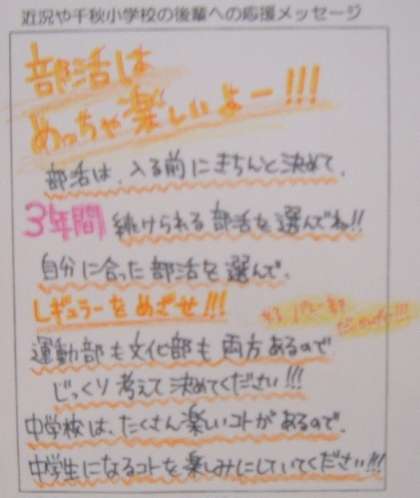 近況や千秋小学校の後輩への応援メッセージ
部活は
めっちゃ楽しいよー!!!
部活は、入る前にきちんと決めて、
3年間続けられる部活を選んでね!!
自分に合った部活を選んで、
レギュラーをめざせ!!!
運動部も文化部も両方あるので
じっくり考えて決めてください!!!
中学校は、たくさん楽しいコトがあるので、
中学生になるコトを楽しみにしていてください!!!